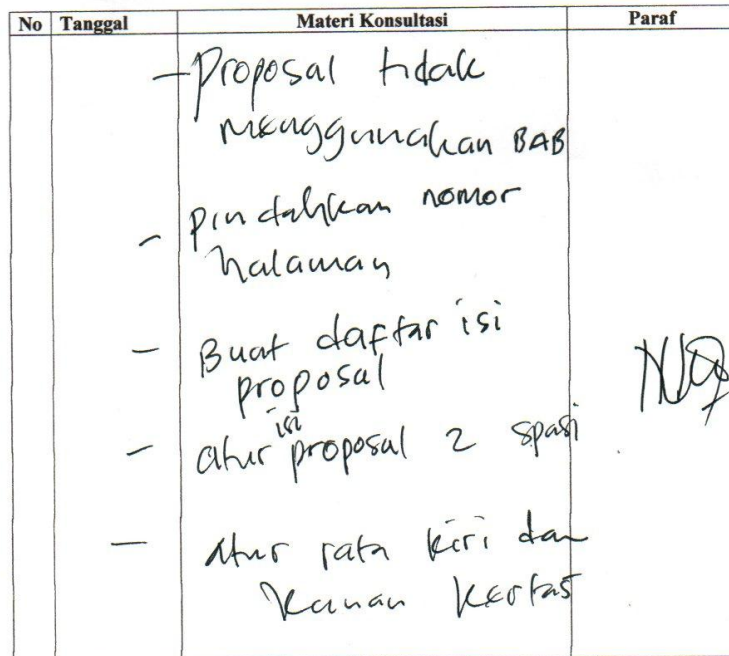 No Tanggal Materi Konsultasi Paraf
- Proposal tidak
menggunakan BAB
- pindahkan nomor
halaman
- Buat daftar isi
proposal
isi
- atur proposal 2 spasi
- Atur rata kiri dan
kanan kertas